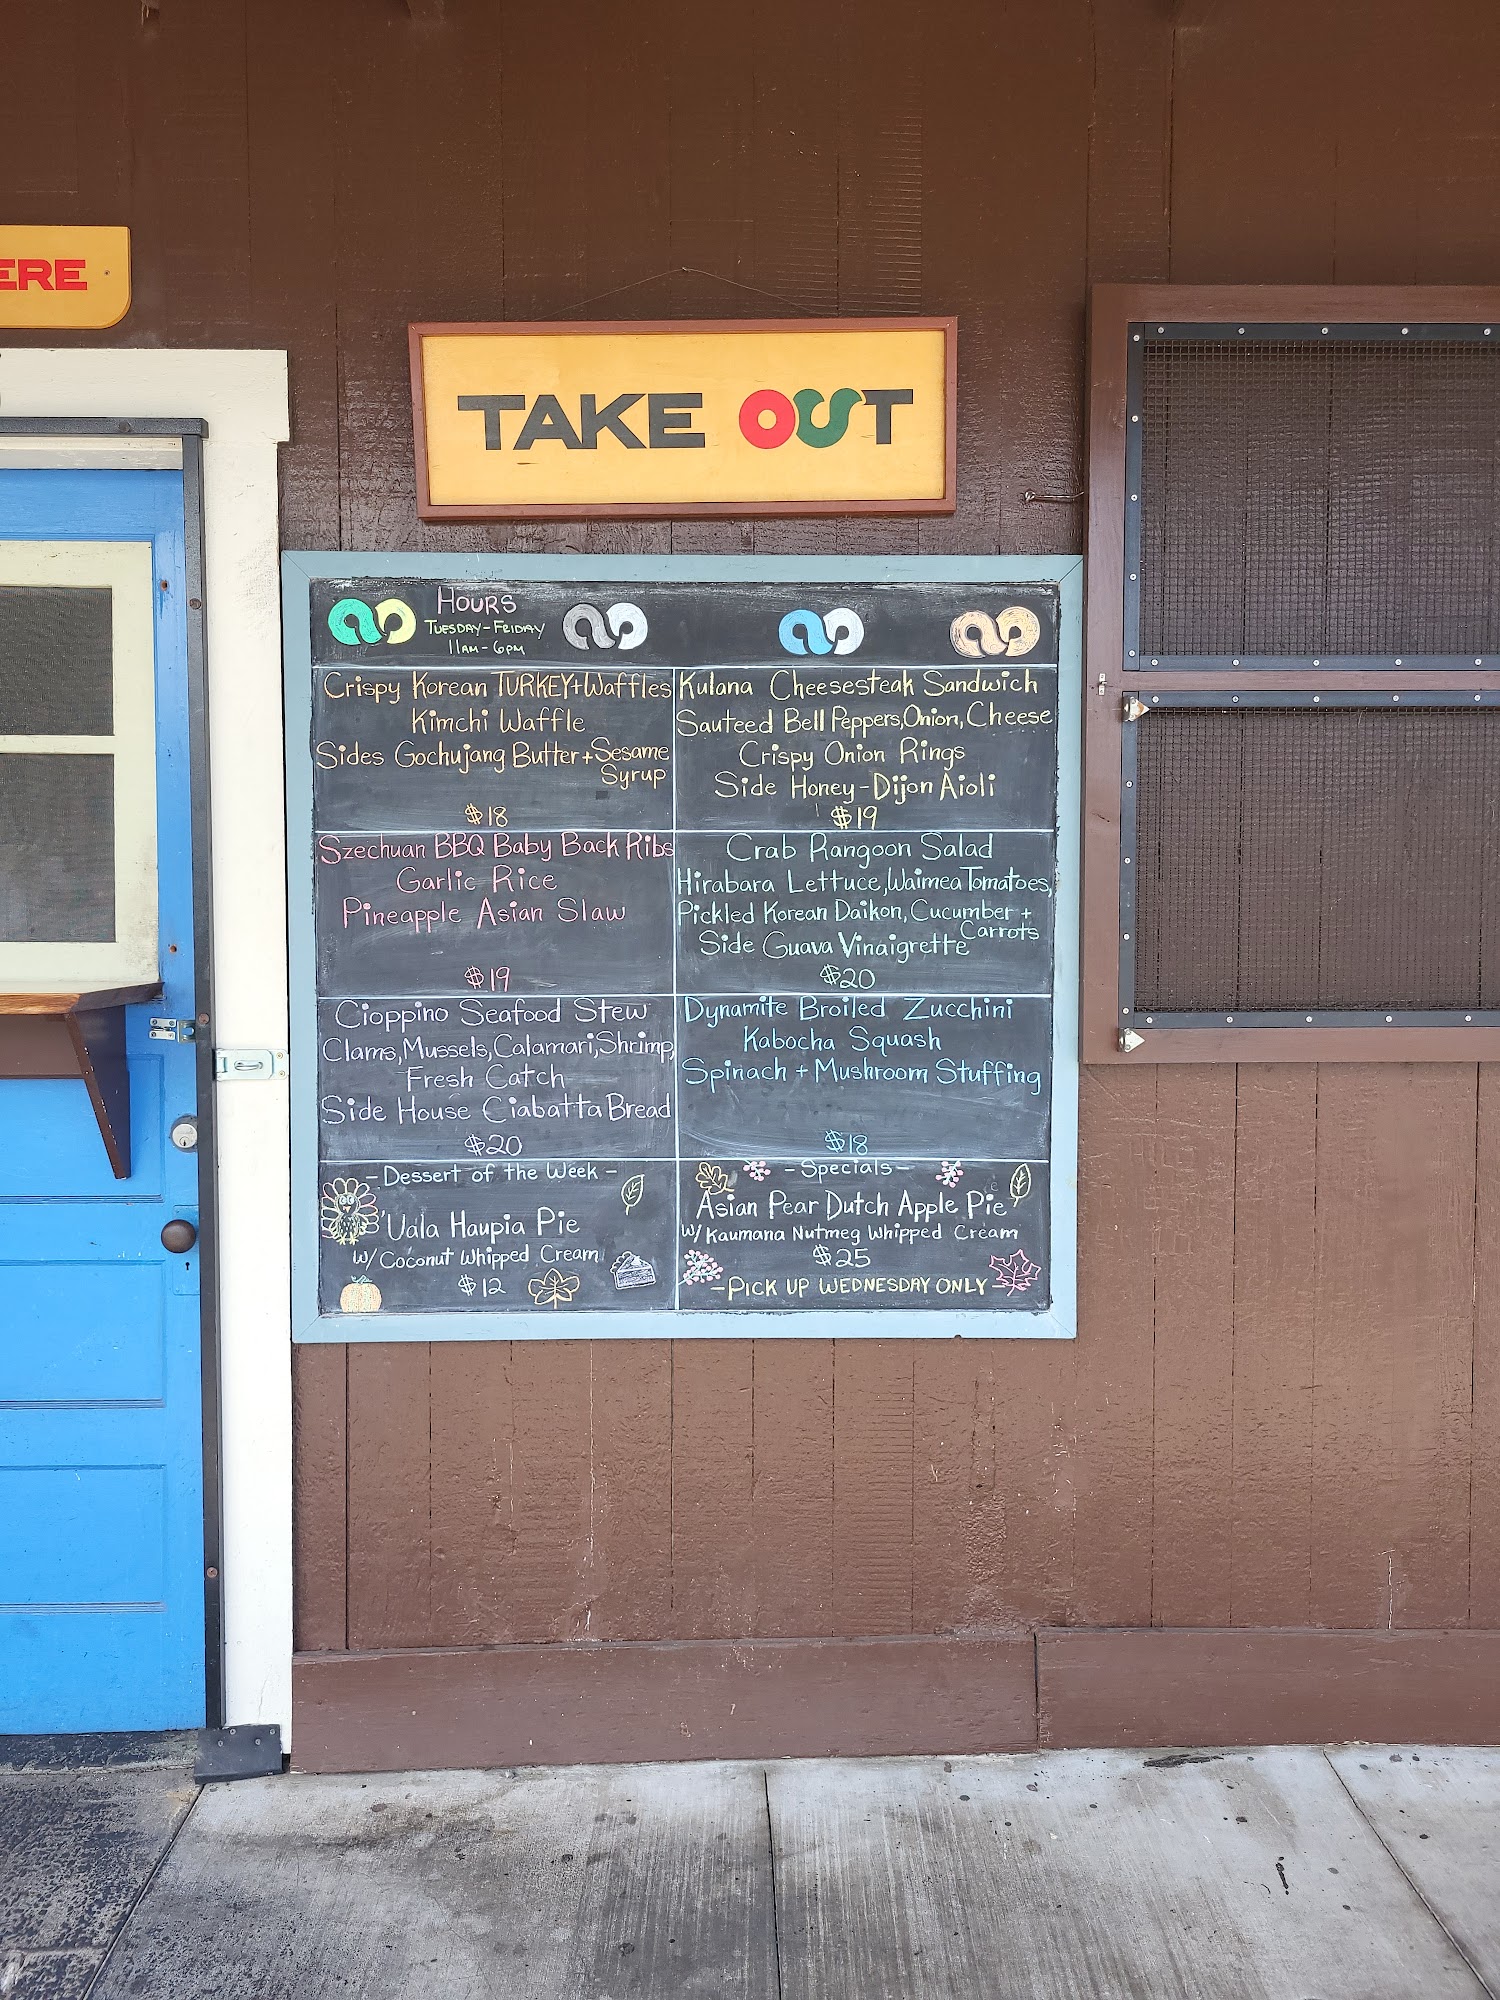 ERE
TAKE OUT
HOURS
TUESDAY-FRIDAY
11AM-6PM
Crispy Korean TURKEY+Waffles
Kimchi Waffle
Sides Gochujang Butter+Sesame
Syrup
$18
Kulana Cheesesteak Sandwich
Sauteed Bell Peppers, Onion, Cheese
Crispy Onion Rings
Side Honey-Dijon Aioli
$19
Szechuan BBQ Baby Back Ribs
Garlic Rice
Pineapple Asian Slaw
$19
Crab Rangoon Salad
Hirabara Lettuce, Waimea Tomatoes,
Pickled Korean Daikon, Cucumber +
Carrots
Side Guava Vinaigrette
$20
Cioppino Seafood Stew
Clams, Mussels, Calamari, Shrimp,
Fresh Catch
Side House Ciabatta Bread
$20
Dynamite Broiled Zucchini
Kabocha Squash
Spinach + Mushroom Stuffing
$18
-Dessert of the Week-
'Uala Haupia Pie
w/ Coconut Whipped Cream
$12
-Specials-
Asian Pear Dutch Apple Pie
w/ Kaumana Nutmeg Whipped Cream
$25
-PICK UP WEDNESDAY ONLY-